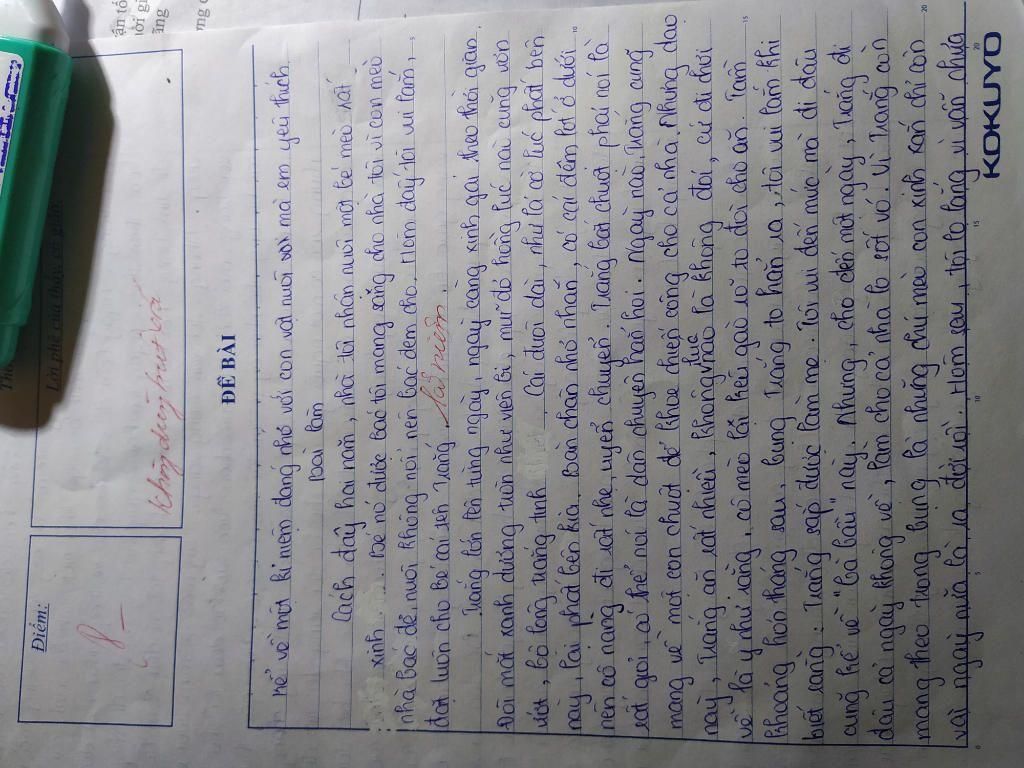 Điểm:
8-
Lời phê của thầy, cô giáo
ĐỀ BÀI
Kể về một kỉ niệm đáng nhớ với con vật nuôi mà em yêu thích.
Bài làm
Cách đây hai năm, nhà tôi nhận nuôi một bé mèo rất
xinh. Bé nó được bác tôi mang sang cho nhà tôi vì con mèo
nhà bác đẻ, nuôi không nổi nên bác đem cho. Hôm đấy tôi vui lắm,
đặt luôn cho bé cái tên Trắng
Trắng lớn lên từng ngày, ngày càng xinh gái theo thời gian.
Đôi mắt xanh dương tròn như viên bi, mũi đỏ hồng lúc nào cũng ươn
ướt, bộ lông trắng tinh. Cái đuôi dài, như là cờ lúc phất bên
này, lại phất bên kia. Bàn chân nhỏ nhắn, có cái đệm lót ở dưới
nên cô nàng đi rất nhẹ, uyển chuyển. Trắng bắt chuột phải nói là
rất giỏi, có thể nói là dân chuyên hẳn hoi. Ngày nào, Trắng cũng
mang về một con chuột để khoe chiến công cho cả nhà. Nhưng dạo
này, Trắng ăn rất nhiều, không lúc nào là không đói, cứ đi chơi
về là y như rằng, cô mèo lại kêu gào rõ to đòi cho ăn. Tầm
khoảng hơn tháng sau, bụng Trắng to hẳn ra, tôi vui lắm khi
biết rằng: Trắng sắp được làm mẹ. Tôi vui đến mức mà đi đâu
cũng kể về "bà bầu" này. Nhưng, cho đến một ngày, Trắng đi
đâu cả ngày không về, làm cho cả nhà lo sốt vó. Vì Trắng còn
mang theo trong bụng là những chú mèo con xinh xắn chỉ còn
vài ngày nữa là ra đời rồi. Hôm sau, tôi lo lắng vì vẫn chưa
KOKUYO